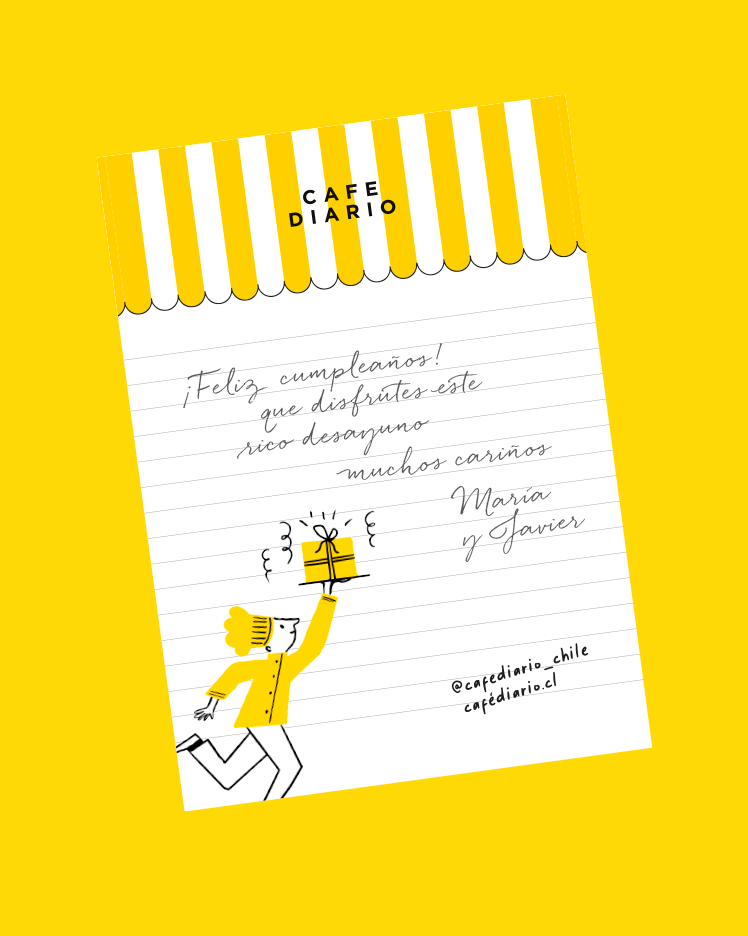 CAFE
DIARIO
¡Feliz cumpleaños!
que disfrutes este
rico desayuno
muchos cariños
María
y Javier
@cafediario_chile
cafédiario.cl